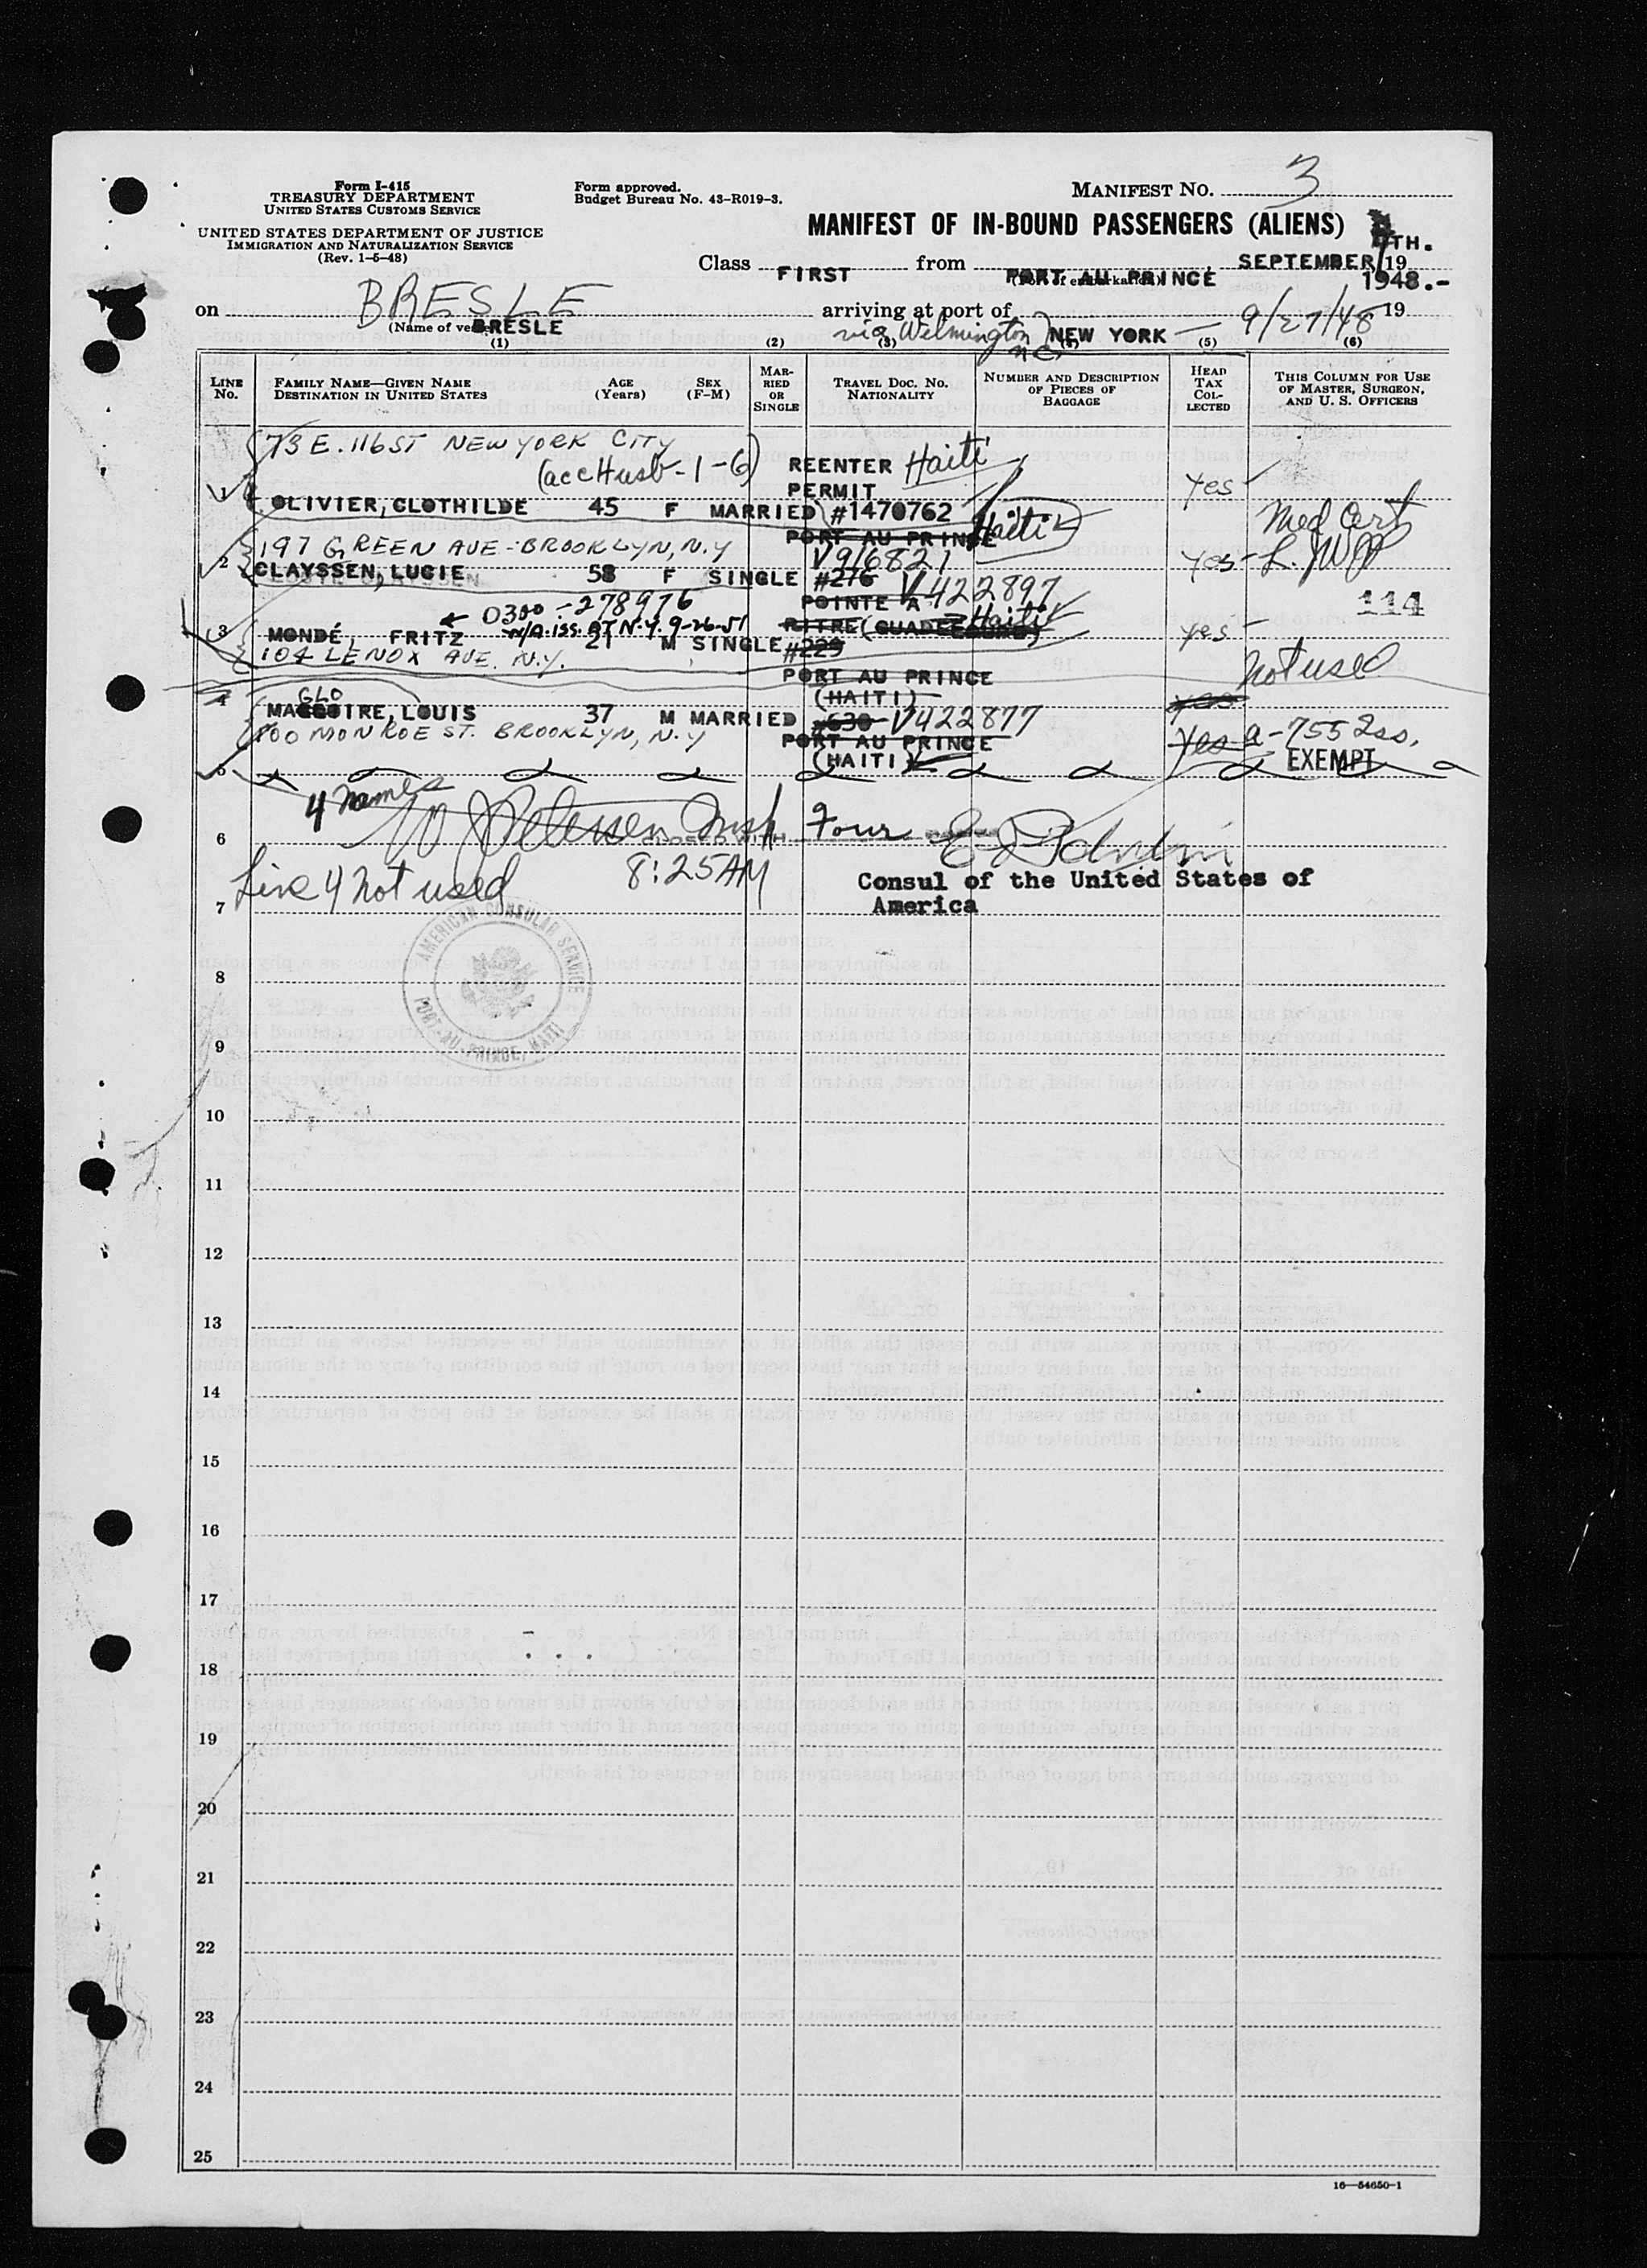 Form I-415
TREASURY DEPARTMENT
UNITED STATES CUSTOMS SERVICE
UNITED STATES DEPARTMENT OF JUSTICE
IMMIGRATION AND NATURALIZATION SERVICE
(Rev. 1-5-48)
Form approved.
Budget Bureau No. 43-R019-3.
MANIFEST NO. 3
MANIFEST OF IN-BOUND PASSENGERS (ALIENS)
Class FIRST from PORT AU PRINCE, SEPTEMBER 7TH. 19
(Port of embarkation) 1948.-
on BRESLE arriving at port of NEW YORK — 9/27/48 19
(Name of vessel) BRESLE via Wilmington N.C.
(1) (2) (3) (4) (5) (6)
LINE NO.
FAMILY NAME—GIVEN NAME
DESTINATION IN UNITED STATES
AGE (Years)
SEX (F-M)
MARRIED OR SINGLE
TRAVEL DOC. NO.
NATIONALITY
NUMBER AND DESCRIPTION OF PIECES OF BAGGAGE
HEAD TAX COLLECTED
THIS COLUMN FOR USE OF MASTER, SURGEON, AND U. S. OFFICERS
73 E. 116 ST NEW YORK CITY
(acc Husb - 1 - 6) REENTER Haiti
PERMIT yes
1 OLIVIER, CLOTHILDE 45 F MARRIED #1470762
PORT AU PRINCE Haiti Med Cert
197 GREEN AVE - BROOKLYN, N.Y V916821 yes -
2 CLAYSSEN, LUCIE 58 F SINGLE #276 V422897
POINTE A 114
← 0300 - 278976
N/A. iss. AT N.Y. 9-26-51 PITRE (GUADELOUPE) Haiti yes -
3 MONDÉ, FRITZ 21 M SINGLE #229
104 LENOX AVE. N.Y. Not used
PORT AU PRINCE
(HAITI) yes
4 GLO
MAGLOIRE, LOUIS 37 M MARRIED #630 V422877
700 MONROE ST. BROOKLYN, N.Y yes a-755 2ss.
PORT AU PRINCE
(HAITI) EXEMPT
5
4 names
6 W Petersen Insp CLOSED WITH Four
Line 4 not used 8:25AM
Consul of the United States of
America
7
AMERICAN CONSULAR SERVICE
PORT-AU-PRINCE, HAITI
8
9
10
11
12
13
14
15
16
17
18
19
20
21
22
23
24
25
16—54650-1